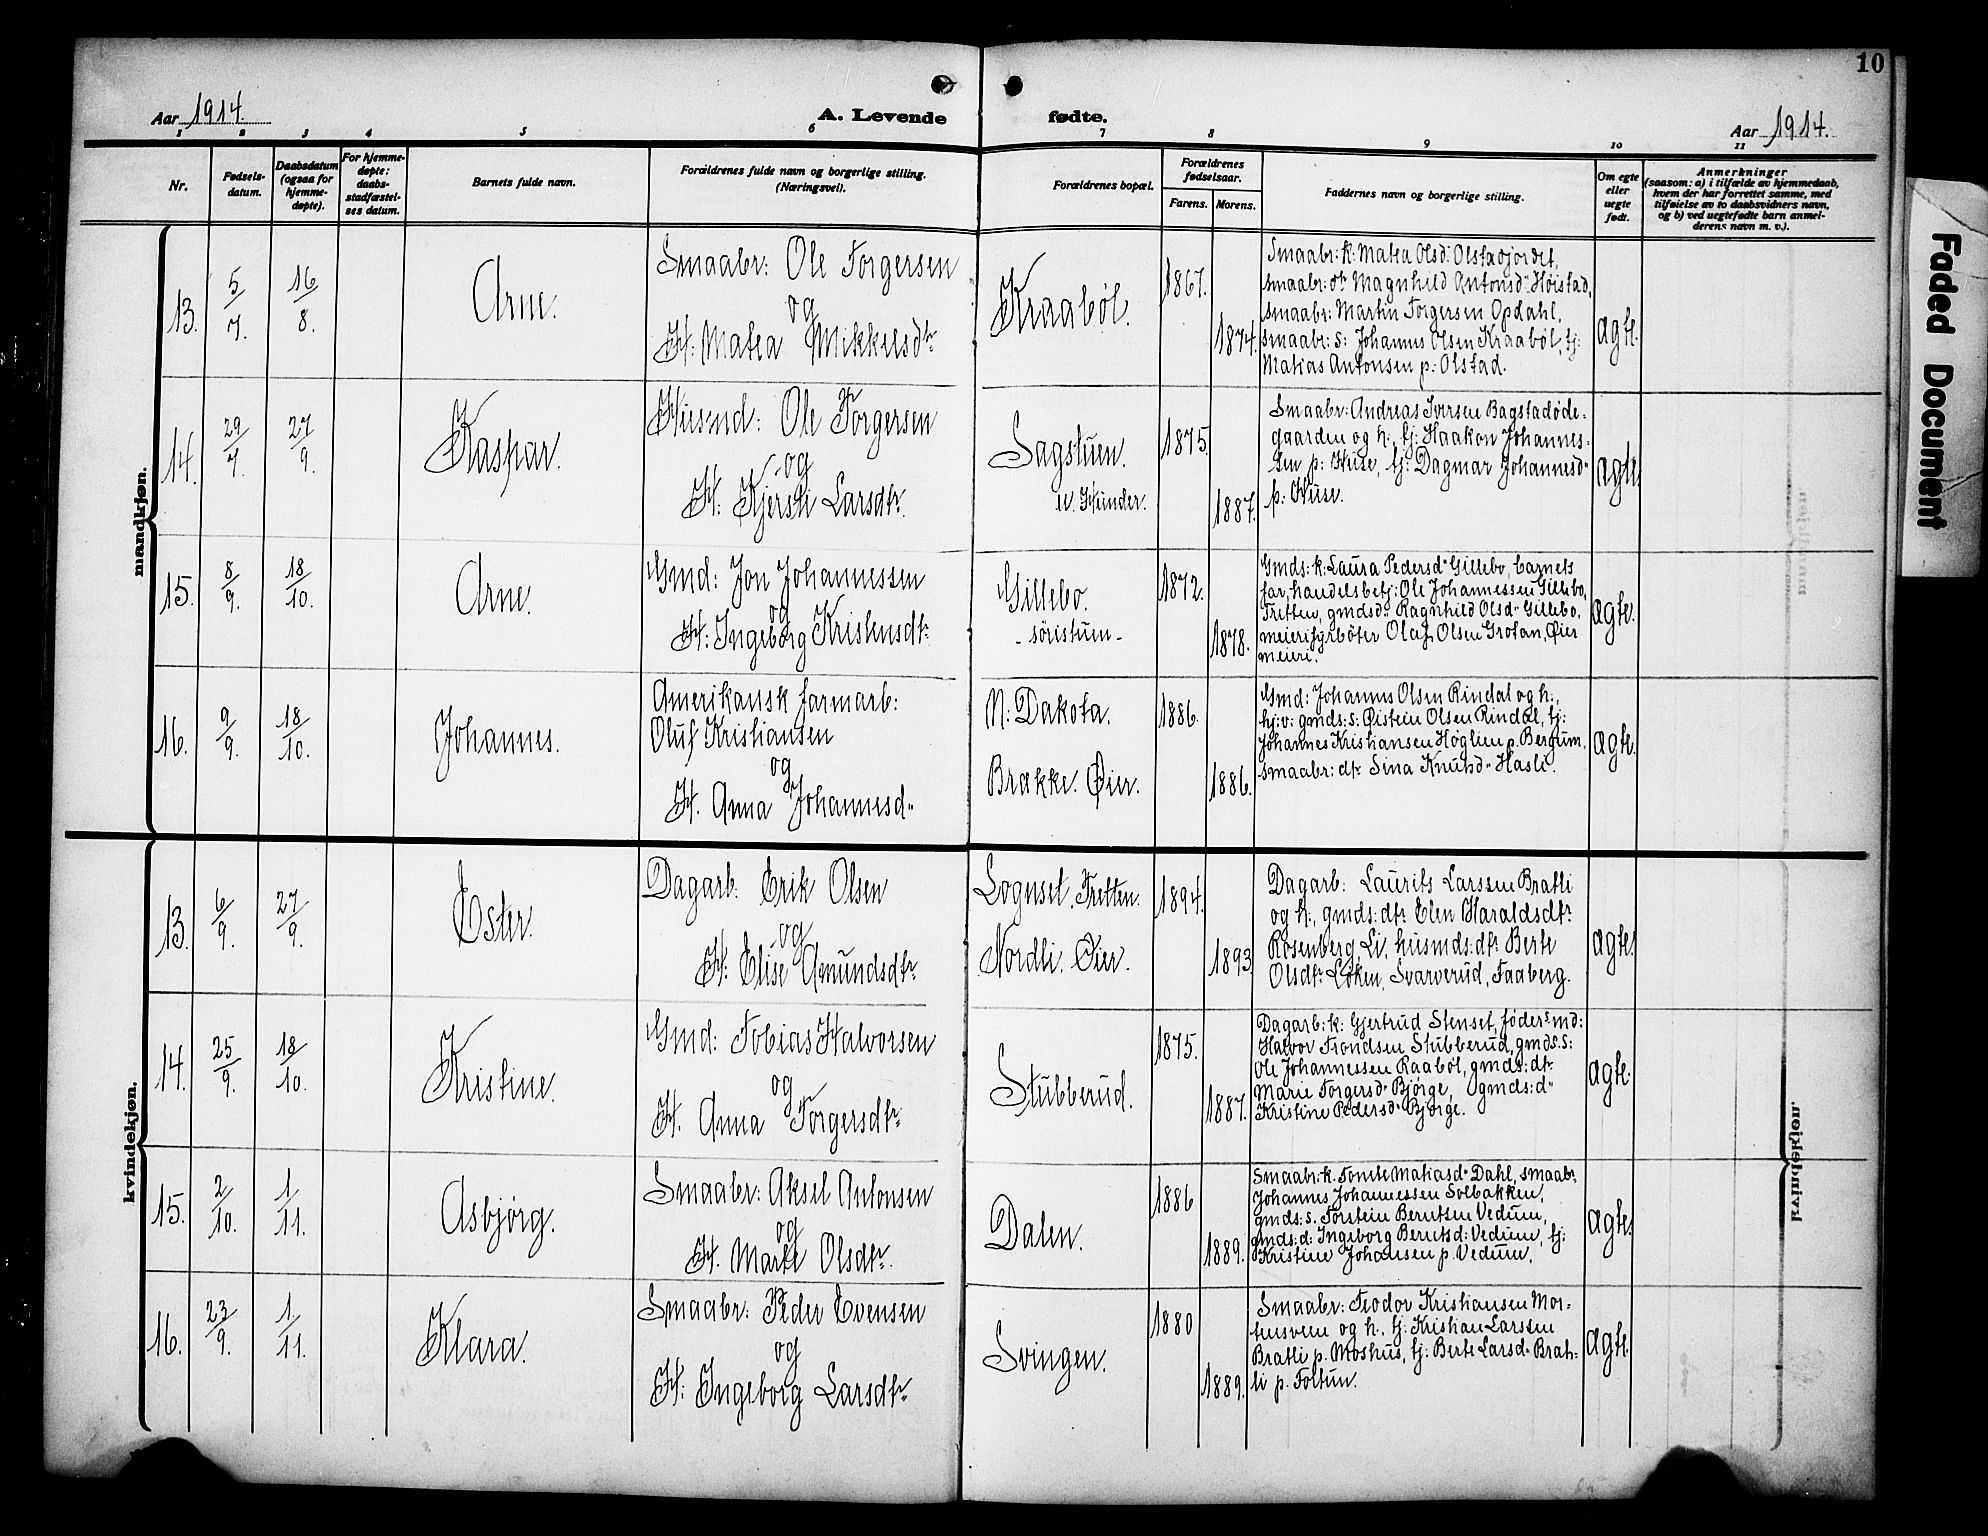 10
Aar 1914.
A. Levende fødte.
Aar 1914.
1 2 3 4 5 6 7 8 9 10 11
Nr.
Fødsels-
datum.
Daabsdatum
(ogsaa for
hjemme-
døpte).
For hjemme-
døpte:
daabs-
stadfæstel-
ses datum.
Barnets fulde navn.
Forældrenes fulde navn og borgerlige stilling.
(Næringsvei).
Forældrenes bopæl.
Forældrenes
fødselsaar.
Farens. Morens.
Faddernes navn og borgerlige stilling.
Om egte
eller
uegte
født.
Anmerkninger
(saasom: a) i tilfælde av hjemmedaab,
hvem der har forrettet samme, med
tilføielse av to daabsvidners navn,
og b) ved uegtefødte barn anmel-
derens navn m. v.).
mandkjøn.
13.
5/7.
16/8.
Arne.
Smaabr: Ole Torgersen
og
H: Matea Mikkelsdtr
Kraabøl.
1867.
1874.
Smaabr: k: Matea Olsd: Olstadjordet,
smaabr: dtr Magnhild Antonsd" Høistad,
smaabr: Martin Torgersen Opdahl,
smaabr: s: Johannes Olsen Kraabøl, tj:
Matias Antonsen p: Olstad.
ægte.
14.
29/7.
27/9.
Kaspar.
Husmd: Ole Torgersen
og
H: Kjersti Larsdtr.
Sagstuen.
u. Hunder.
1875.
1887.
Smaabr: Andreas Iversen Bagstadøde-
gaarden og h., tj: Haakon Johannes-
sen p: Huse, tj: Dagmar Johannesd"
p: Huse.
ægte
15.
8/9.
18/10.
Arne.
Gmd: Jon Johannessen
og
H: Ingeborg Kristensdtr
Gillebo.
- søristuen -
1872.
1878.
Gmds: k: Laura Pedersd" Gillebo, barnets
far, handelsbetj: Ole Johannessen Gillebo,
Tretten, gmdsd: Ragnhild Olsd" Gillebo,
meierifyrbøter Olaf Olsen Grotan, Øier
meieri.
ægte.
16.
9/9.
18/10.
Johannes.
Amerikansk farmarb:
Oluf Kristiansen
og
H. Anna Johannesd"
N: Dakota.
Brække. Øier.
1886.
1886.
Gmd: Johannes Olsen Rindal og h:,
hj: v: gmds: s: Øistein Olsen Rindal, tj:
Johannes Kristiansen Høglien p. Bergum,
smaabr: dtr Sina Knuts" Hasli.
ægte.
kvindekjøn.
13.
6/9.
27/9.
Ester.
Dagarb: Erik Olsen
og
H: Elise Amundsdtr
Lognset, Tretten.
Nordli. Øier.
1894.
1893
Dagarb: Laurits Larssen Bratli
og h:, gmds: dtr Elen Haraldsdtr
Rosenberg, Li, husmds: dtr Berte
Olsdtr Løken, Svarverud, Faaberg.
ægte.
14.
25/9.
18/10.
Kristine.
Gmd: Tobias Halvorsen
og
H. Anna Torgersdtr
Stubberud.
1875.
1887.
Dagarb: k: Gjertrud Stenset, føders md:
Halvor Trondsen Stubberud, gmds. s:
Ole Johannessen Raabøl, gmds: dtr
Marie Torgersd" Bjørge, gmds: d"
Kristine Pedersd" Bjørge.
ægte.
15.
2/10.
1/11.
Asbjørg.
Smaabr: Aksel Antonsen
og
H. Marte Olsdtr.
Dalen.
1886
1889.
Smaabr: k. Tomte Matiasd" Dahl, smaabr,
Johannes Johannessen Solbakken,
gmds: s. Torstein Berntsen Vedum,
gmds: d: Ingeborg Berntsd: Vedum, tj:
Kristine Johansen p. Vedum.
ægte.
16.
23/9.
1/11.
Klara.
Smaabr: Peder Evensen
og
H: Ingeborg Larsdtr
Svingen.
1880
1889.
Smaabr: Teodor Kristiansen Mor-
tensveen og h., tj: Kristian Larssen
Bratli p. Moshus, tj: Berte Larsd" Brat-
li p. Toftun.
ægte.
kvindekjøn.
Faded Document